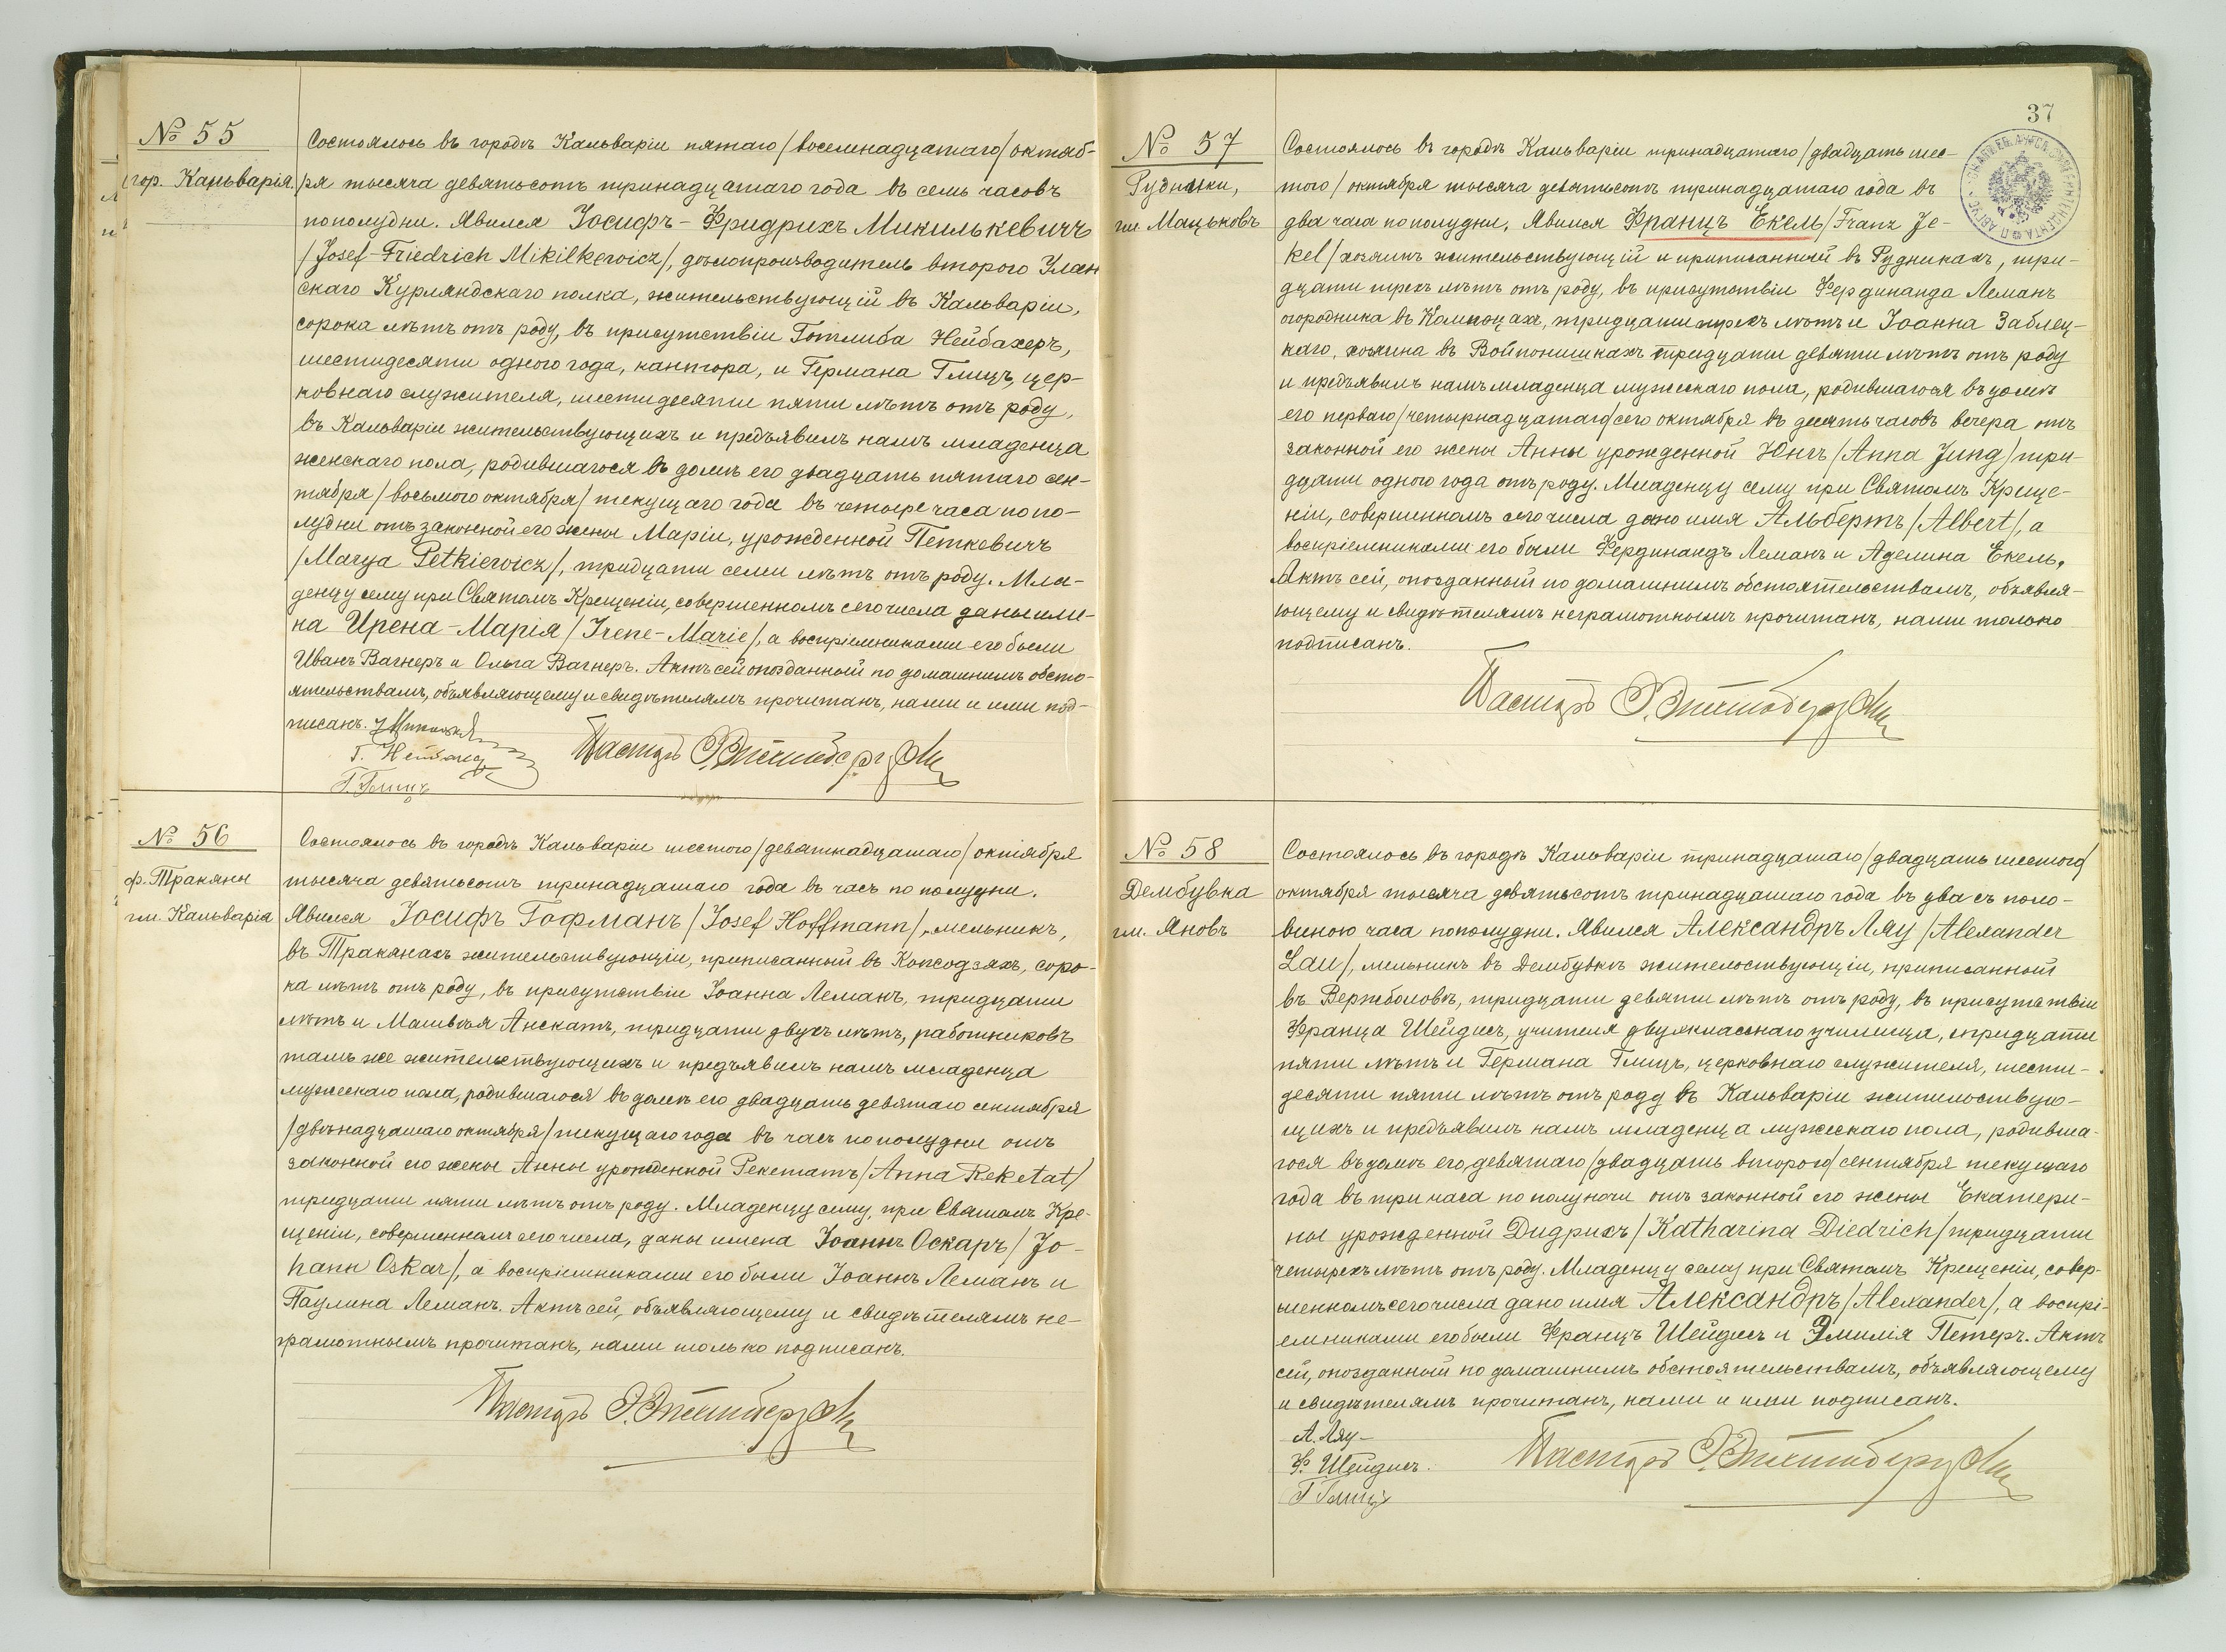 № 55
гор. Кальварія.
Состоялось въ городѣ Кальваріи пятаго /восемнадцатаго/ октяб-
ря тысяча девятьсотъ тринадцатаго года въ семь часовъ
пополудни. Явился Іосифъ-Фридрихъ Микилькевичъ
/Josef-Friedrich Mikilkewicz/, дѣлопроизводитель второго Улан
скаго Курляндскаго полка, жительствующій въ Кальваріи,
сорока лѣтъ отъ роду, въ присутствіи Готлиба Нейбахеръ,
шестидесяти одного года, кантора, и Германа Глицъ, цер-
ковнаго служителя, шестидесяти пяти лѣтъ отъ роду,
въ Кальваріи жительствующихъ и предъявилъ намъ младенца
женскаго пола, родившагося въ домѣ его двадцать пятаго сен-
тября /восьмого октября/ текущаго года въ четыре часа попо-
лудни отъ законной его жены Маріи, урожденной Петкевичъ
/Marya Petkiewicz/, тридцати семи лѣтъ отъ роду. Мла-
денцу сему при Святомъ Крещеніи, совершенномъ сего числа даны име-
на Ирена-Марія /Irene-Marie/, а воспріемниками его были
Иванъ Вагнеръ и Ольга Вагнеръ. Актъ сей опозданный по домашнимъ обсто-
ятельствамъ, объявляющему и свидѣтелямъ прочитанъ, нами и ими под-
писанъ.
Г. Глицъ
Пасторъ
№ 56
ф. Тракяны
гм. Кальварія
Состоялось въ городѣ Кальваріи шестого /девятнадцатаго/ октября
тысяча девятьсотъ тринадцатаго года въ часъ по полудни.
Явился Іосифъ Гофманъ /Josef Hoffmann/, мельникъ,
въ Траканахъ жительствующій, приписанный въ Копсодзяхъ, соро-
ка лѣтъ отъ роду, въ присутствіи Іоанна Леманъ, тридцати
лѣтъ и Матвѣя Анскатъ, тридцати двухъ лѣтъ, работниковъ
тамъ же жительствующихъ и предъявилъ намъ младенца
мужескаго пола, родившагося въ домѣ его двадцать девятаго сентября
/двѣнадцатаго октября/ текущаго года въ часъ пополудни отъ
законной его жены Анны урожденной Рекетатъ /Anna Reketat/
тридцати пяти лѣтъ отъ роду. Младенцу сему, при Святомъ Кре-
щеніи, совершенномъ сего числа, даны имена Іоаннъ Оскаръ /Jo-
hann Oskar/, а воспріемниками его были Іоаннъ Леманъ и
Паулина Леманъ. Актъ сей, объявляющему и свидѣтелямъ не-
грамотнымъ прочитанъ, нами только подписанъ.
Пасторъ
37
№ 57
Рудники,
гм. Мацьковъ
Состоялось въ городѣ Кальваріи тринадцатаго /двадцать шес-
того/ октября тысяча девятьсотъ тринадцатаго года въ
два часа пополудни. Явился Францъ Екель /Franz Je-
kel/ хозяинъ жительствующій и приписанный въ Рудникахъ, три-
дцати трехъ лѣтъ отъ роду, въ присутствіи Фердинанда Леманъ
огородника въ Компоцахъ, тридцати трехъ лѣтъ и Іоанна Заблец-
каго, хозяина въ Войпонишкахъ тридцати девяти лѣтъ отъ роду
и предъявилъ намъ младенца мужескаго пола, родившагося въ домѣ
его перваго /четырнадцатаго/ сего октября въ десять часовъ вечера отъ
законной его жены Анны урожденной Юнгъ /Anna Jung/ три-
дцати одного года отъ роду. Младенцу сему при Святомъ Креще-
ніи, совершенномъ сего числа дано имя Альбертъ /Albert/, а
воспріемниками его были Фердинандъ Леманъ и Аделина Екель.
Актъ сей, опозданный по домашнимъ обстоятельствамъ, объявля-
ющему и свидѣтелямъ неграмотнымъ прочитанъ, нами только
подписанъ.
Пасторъ
№ 58
Дембувка
гм. Яновъ
Состоялось въ городѣ Кальваріи тринадцатаго /двадцать шестого/
октября тысяча девятьсотъ тринадцатаго года въ два съ поло-
виною часа пополудни. Явился Александръ Ляу /Alexander
Lau/, мельникъ въ Дембувкѣ жительствующій, приписанный
въ Вержболовѣ, тридцати девяти лѣтъ отъ роду, въ присутствіи
Франца Шейдисъ, учителя двухкласснаго училища, тридцати
пяти лѣтъ и Германа Глицъ, церковнаго служителя, шести-
десяти пяти лѣтъ отъ роду въ Кальваріи жительствую-
щихъ и предъявилъ намъ младенца мужескаго пола, родивша-
гося въ домѣ его, девятаго /двадцать второго/ сентября текущаго
года въ три часа по полуночи отъ законной его жены Екатери-
ны урожденной Дидрихъ /Katharina Diedrich/ тридцати
четырехъ лѣтъ отъ роду. Младенцу сему при Святомъ Крещеніи, совер-
шенномъ сего числа дано имя Александръ /Alexander/, а воспрі-
емниками его были Францъ Шейдисъ и Эмилія Петеръ. Актъ
сей, опозданный по домашнимъ обстоятельствамъ, объявляющему
и свидѣтелямъ прочитанъ, нами и ими подписанъ.
А. Ляу
Ф. Шейдисъ.
Г. Глицъ
Пасторъ